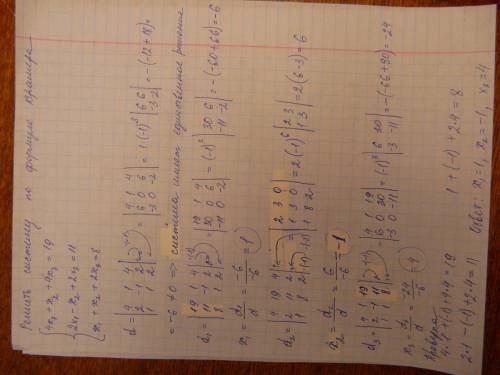 Решить систему по формуле Крамера
{ 4x₁ + x₂ + 4x₃ = 19
{ 2x₁ - x₂ + 2x₃ = 11
{ x₁ + x₂ + 2x₃ = 8
d = |4 1 4; 2 -1 2; 1 1 2| = |4 1 4; 6 0 6; -3 0 -2| = 1(-1)³ |6 6; -3 -2| = -(-12+18) =
= -6 ≠ 0 ⇒ система имеет единственное решение
d₁ = |19 1 4; 11 -1 2; 8 1 2| = |19 1 4; 30 0 6; -11 0 -2| = (-1)³ |30 6; -11 -2| = -(-60+66) = -6
x₁ = d₁/d = -6/-6 = 1
d₂ = |4 19 4; 2 11 2; 1 8 2| = |2 3 0; 1 3 0; 1 8 2| = 2(-1)⁶ |2 3; 1 3| = 2(6-3) = 6
x₂ = d₂/d = 6/-6 = -1
d₃ = |4 1 19; 2 -1 11; 1 1 8| = |4 1 19; 6 0 30; -3 0 -11| = (-1)³ |6 30; -3 -11| = -(-66+90) = -24
x₃ = d₃/d = -24/-6 = 4
Проверка
4·1+(-1)+4·4=19
2·1-(-1)+2·4=11 1+(-1)+2·4=8
Ответ: x₁=1, x₂=-1, x₃=4